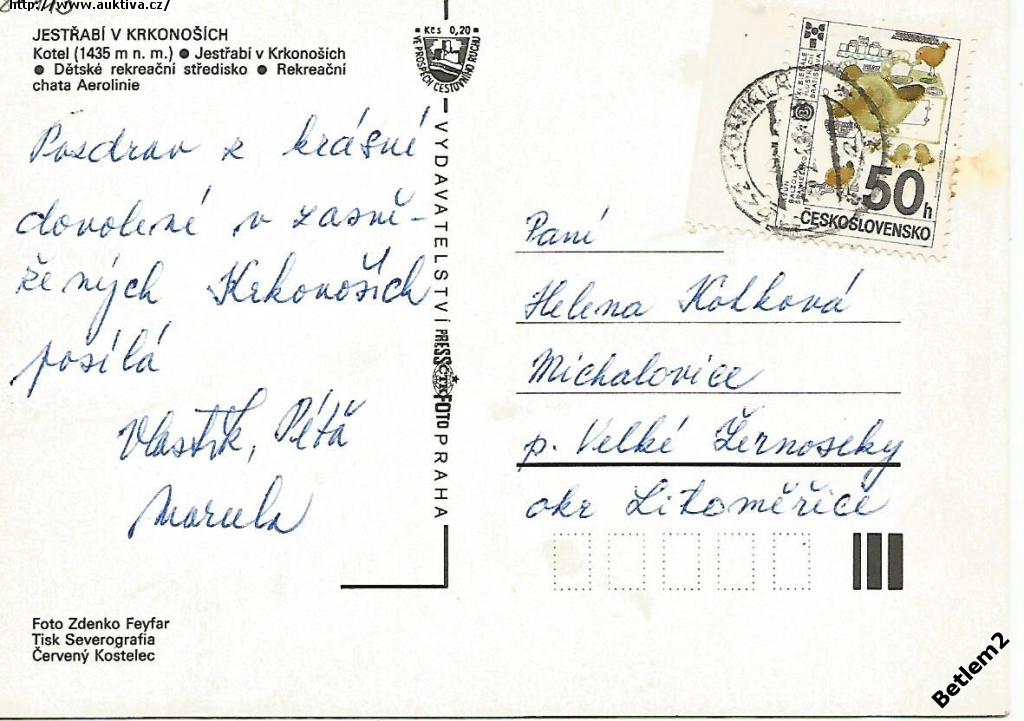 http://www.auktiva.cz/
JESTŘABÍ V KRKONOŠÍCH
Kotel (1435 m n. m.) ● Jestřabí v Krkonoších
● Dětské rekreační středisko ● Rekreační
chata Aerolinie
Kčs 0,20
VE PROSPĚCH CESTOVNÍHO RUCHU
Pozdrav z krásné
dovolené v zasně-
žených Krkonoších
posílá
Vlastík, Péťa
Marcela
VYDAVATELSTVÍ PRESSFOTO PRAHA
ČTK
XI BIENALE
ILUSTRÁCIÍ
BRATISLAVA
50h
ČESKOSLOVENSKO
Paní
Helena Kotková
Michalovice
p. Velké Žernoseky
okr Litoměřice
Foto Zdenko Feyfar
Tisk Severografia
Červený Kostelec
Betlem2